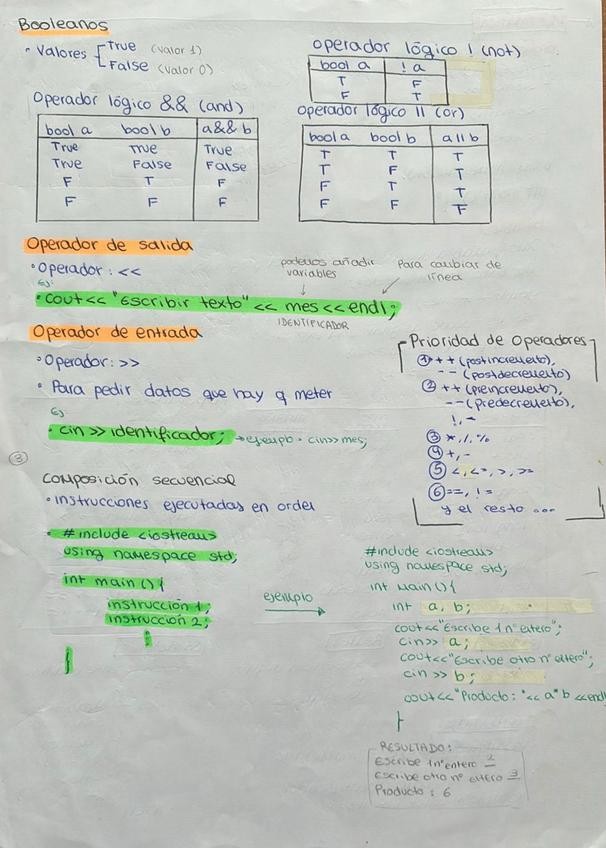 Booleanos
• Valores [ True (valor 1)
False (valor 0)
operador lógico ! (not)
bool a | !a
T | F
F | T
Operador lógico && (and)
bool a | bool b | a && b
True | True | True
True | False | False
F | T | F
F | F | F
operador lógico || (or)
bool a | bool b | a || b
T | T | T
T | F | T
F | T | T
F | F | F
Operador de salida
• Operador : <<
podemos añadir variables
Para cambiar de línea
Ej:
• cout << "Escribir texto" << mes << endl;
IDENTIFICADOR
Operador de entrada
• Operador: >>
• Para pedir datos que hay q meter
Ej
• cin >> identificador; → ejemplo • cin>>mes;
Prioridad de Operadores
① ++ (postincremento),
-- (postdecremento)
② ++ (preincremento),
-- (Predecremento),
!, -
③ *, /, %
④ +, -
⑤ <, <=, >, >=
⑥ ==, !=
y el resto ...
③
Composición secuencial
• Instrucciones ejecutadas en orden
• #include <iostream>
using namespace std;
int main () {
instrucción 1;
instrucción 2;
⋮
}
ejemplo
#include <iostream>
using namespace std;
int Main() {
int a, b;
cout<<"Escribe 1 nº entero";
cin>> a;
cout<<"Escribe otro nº entero";
cin >> b;
cout<<"Producto: "<< a*b <<endl
}
RESULTADO:
Escribe 1nº entero 2
Escribe otro nº entero 3
Producto : 6